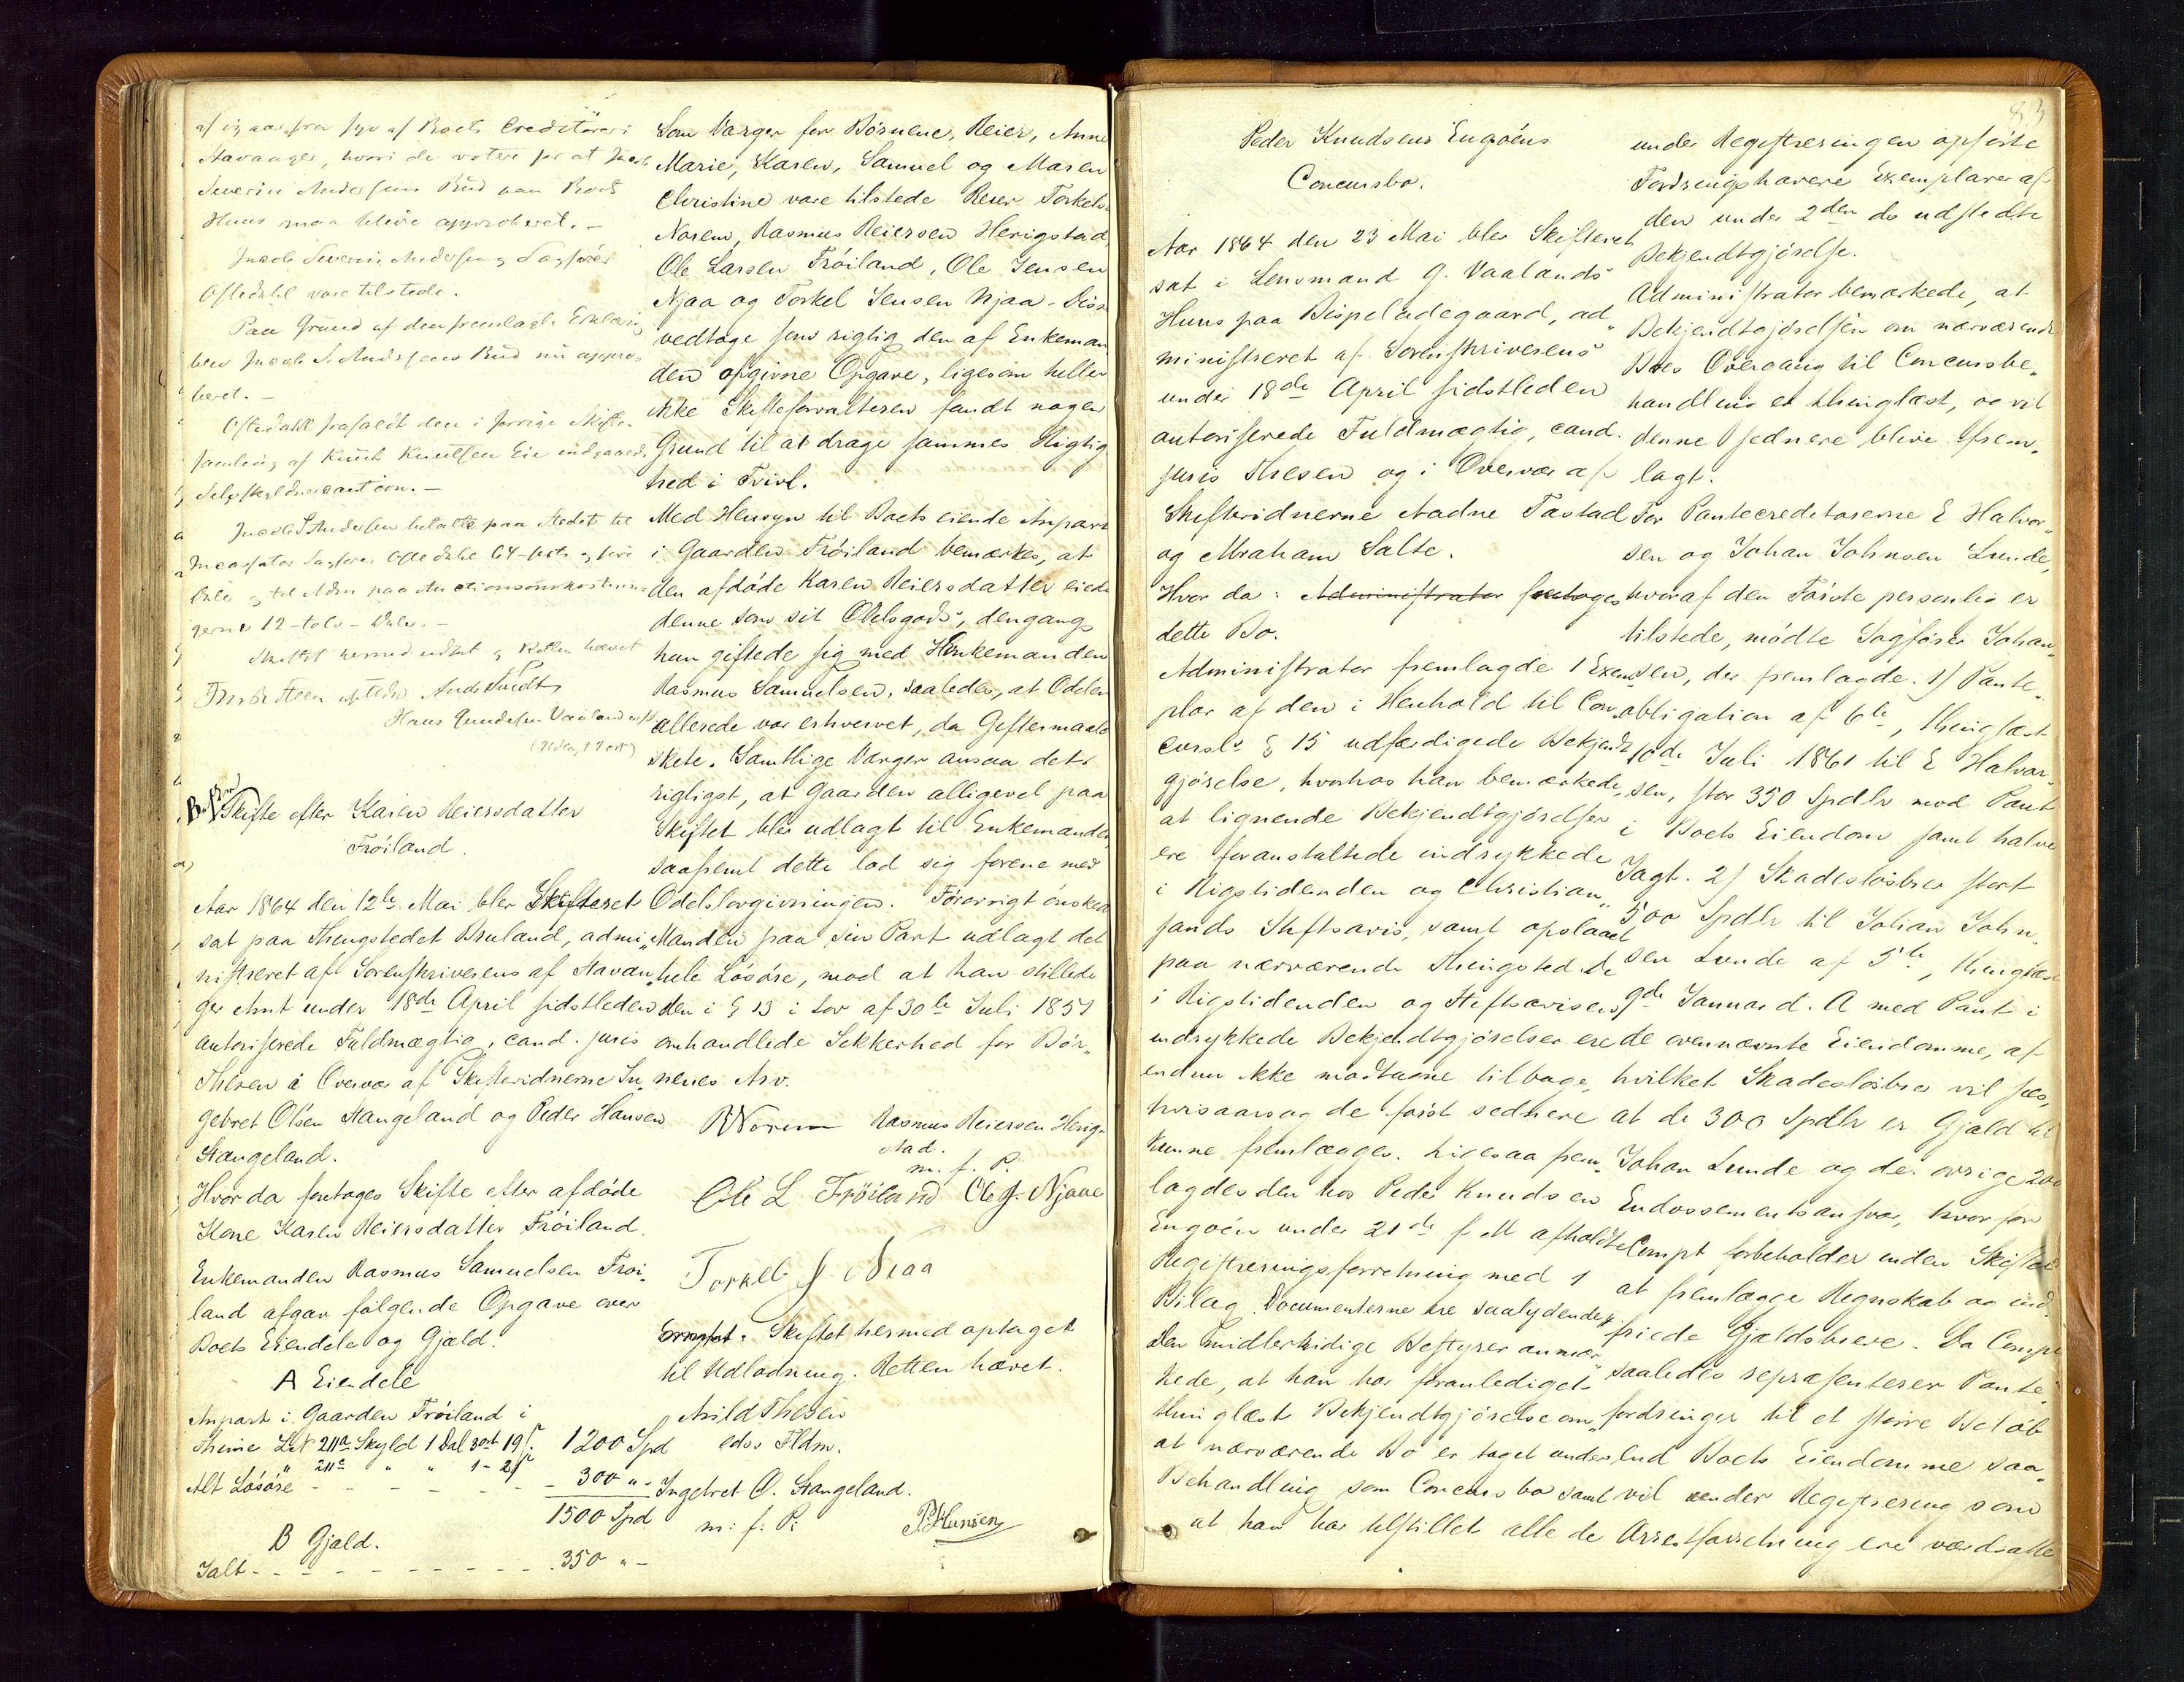 af igaar fra fyr af Boets Creditorer i
Stavanger, hvori de votere for at Jacob
Severin Andersens Bud paa Boets
Huus maa blive approberet. –
Jacob Severin Andersen og Sagfører
Oftedahl vare tilstede.
Paa Grund af den fremlagte Erklæring
blev Jacob S. Andersens Bud nu appro-
beret. –
Oftedahl frafaldt den i forrige Skifte-
samling af Knut Knutsen Eie indgaaede
Selvskyldnercaution. –
Jacob S. Andersen betalte paa Stedet til
Incassator Sagfører Oftedahl 64 – og fire
Dlr og til Adm paa Auctionsomkostnin-
gerne 12 – tolv – Daler. –
Skiftet hermed udsat og Retten hævet
Ths. B. Steen Anders Tuedt
Hans Gundersen Vaaland
Skifte efter Karen Reiersdatter
Frøiland.
Aar 1864 den 12te Mai blev Skifteret
sat paa Thingstedet Bruland, admi„
nistreret af Sorenskriverens af Stavan„
ger Amt under 18de April sidstleden
autoriserede Fuldmægtig, cand. juris
Thesen i Overvær af Skifteridnerne In„
gebret Olsen Stangeland og Peder Hansen
Stangeland.
Hvor da foretoges Skifte efter afdøde
Kone Karen Reiersdatter Frøiland.
Enkemanden Rasmus Samuelsen Frøi„
land afgav følgende Opgave over
Boets Eiendele og Gjæld.
A Eiendele
Anpart i Gaarden Frøiland i
Thime L.No 211a Skyld 1 Dal 3 ort 19 s. 1200 Spd
" 211c " " 1 - 21
Alt Løsøre - - - - - - - 300 " -
1500 Spd
B Gjæld.
Ialt - - - - - - - - - - 350 " -
Som Værger for Børnene, Reier, Anne
Marie, Karen, Samuel og Maren
Christine vare tilstede Reier Torkels.
Noren, Rasmus Reiersen Herigstad,
Ole Larsen Frøiland, Ole Jensen
Njaa og Torkel Jensen Njaa. Disse
vedtoge som rigtig den af Enkeman„
den afgivne Opgave, ligesom heller
ikke Skifteforvalteren fandt nogen
Grund til at drage sammes Rigtig„
hed i Tvivl.
Med Hensyn til Boets eiende Anpart
i Gaarden Frøiland bemærkes, at
den afdøde Karen Reiersdatter eiede
denne som sit Odelsgods, dengang
hun giftede sig med Enkemanden
Rasmus Samuelsen, saaledes, at Odelen
allerede var erhvervet, da Giftermaalet
skete. Samtlige Værger ansaa det
rigtigst, at Gaarden alligevel paa
Skiftet blev udlagt til Enkemanden,
saafremt dette lod sig forene med
Odelslovgivningen. Forøvrigt ønskede
Manden paa sin Part udlagt det
hele Løsøre, mod at han stillede
den i § 13 i Lov af 30te Juli 1851
omhandlede Sikkerhed for Bør„
nenes Arv.
R Noren Rasmus Reiersen Herig-
stad.
m. f. P.
Ole L Frøiland Ole J. Njaae
Torkell J Niaa
Skiftet hermed optaget
til Udlodning. Retten hævet.
Arild Thesen
edsv. Fldm.
Ingebret O. Stangeland.
m: f: P: P. Hansen
83
Peder Knudsens Engøens
Concursbo.
Aar 1864 den 23 Mai blev Skifteret
sat i Lensmand G. Vaalands
Huus paa Bispeladegaard, ad„
ministreret af Sorenskriverens
under 18de April sidstleden
autoriserede Fuldmægtig, cand.
juris Thesen og i Overvær af
Skifteridnerne Aadne Tastad
og Abraham Salte.
Hvor da: Administrator foretoges
dette Bo.
Administrator fremlagde 1 Exem„
plar af den i Henhold til Con„
cursl. § 15 udfærdigede Bekjendt„
gjørelse, hvorhos han bemærkede,
at lignende Bekjendtgjørelser
ere foranstaltede indrykkede
i Rigstidenden og Christian„
sands Stiftsavis, samt opslaaet
paa nærværende Thingsted. De
i Rigstidenden og Stiftsavisen
indrykkede Bekjendtgjørelser ere
endnu ikke modtagne tilbage,
hvisaarsag de først sednere
kunne fremlægges. Ligesaa frem„
lagdes den hos Peder Knudsen
Engøen under 21de f. M afholdte
Registreringsforretning med 1
Bilag. Documenterne ere saalydende:
Den midlertidige Bestyrer anmær„
kede, at han har foranlediget
thinglæst Bekjendtgjørelse om,
at nærværende Bo er taget under
Behandling som Concursbo samt
at han har tilstillet alle de
under Registreringen opførte
Fordringshavere Exemplarer af
den under 2den ds udstedte
Bekjendtgjørelse.
Administrator bemærkede, at
Bekjendtgjørelsen om nærværende
Boes Overgang til Concursbe„
handling er thinglæst, og vil
denne sednere blive frem„
lagt.
For Pantecreditorerne E Halvor„
sen og Johan Johnsen Lunde,
hvoraf den Første personlig er
tilstede, mødte Sagfører Johan„
sen, der fremlagde: 1) Pante„
obligation af 6te, thinglæst
10de Juli 1861 til E Halvor„
sen, stor 350 Spdlr mod Pant
i Boets Eiendom samt halve
Jagt. 2) Skadesløsbrev stort
500 Spdlr til Johan John„
sen Lunde af 5te, thinglæst
9de Januar d. A med Pant i
de ovennævnte Eiendomme, af
hvilket Skadesløsbrev vil sees,
at de 300 Spdlr er Gjæld til
Johan Lunde og de øvrige 200
Endossementsansvar, hvorfor
Compt forbeholder under Skiftet
at fremlægge Regnskab og ind„
friede Gjældsbreve. Da Compt
saaledes repræsenterer Pante„
fordringer til et større Beløb
end Boets Eiendomme saa„
vel under Registrering som
Arrestforretning ere værdsatte